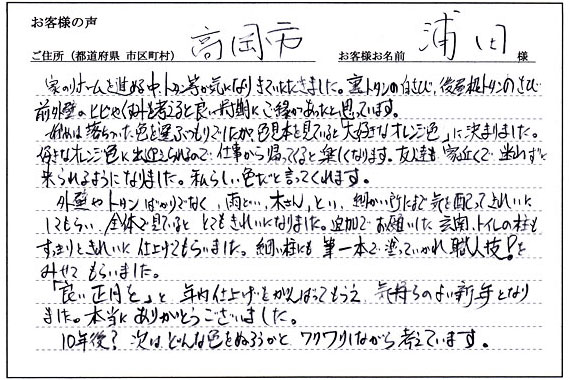 お客様の声
ご住所（都道府県 市区町村） 高岡市 お客様お名前 浦田 様
家のリホームを進める中、トタン等が気になりきていただきました。裏トタンの白さび、後屋根トタンのさび
前外壁のヒビやくぼみを考えると良い時期にご縁があったと思っています。
始めは落ちついた色を選ぶつもりでしたが色見本を見ていると「大好きなオレンジ色」に決まりました。
好きなオレンジ色に出迎えられるので、仕事から帰ってくると楽しくなります。友達も家近くで迷わずに
来られるようになりました。私らしい色だと言ってくれます。
外壁やトタンばかりでなく、雨とい、木さん、とい、細かい所にまで気を配ってきれいに
してもらい、全体で見ていると とてもきれいになりました。追加でお願いした玄関、トイレの柱も
すっきりときれいに仕上げてもらいました。細い柱にも筆一本で塗っていかれ職人技!を
みせてもらいました。
「良い正月を」と年内仕上げをがんばってもらえ 気持ちのよい新年となり
ました。本当にありがとうございました。
10年後? 次はどんな色をぬろうかと ワクワクしながら考えています。